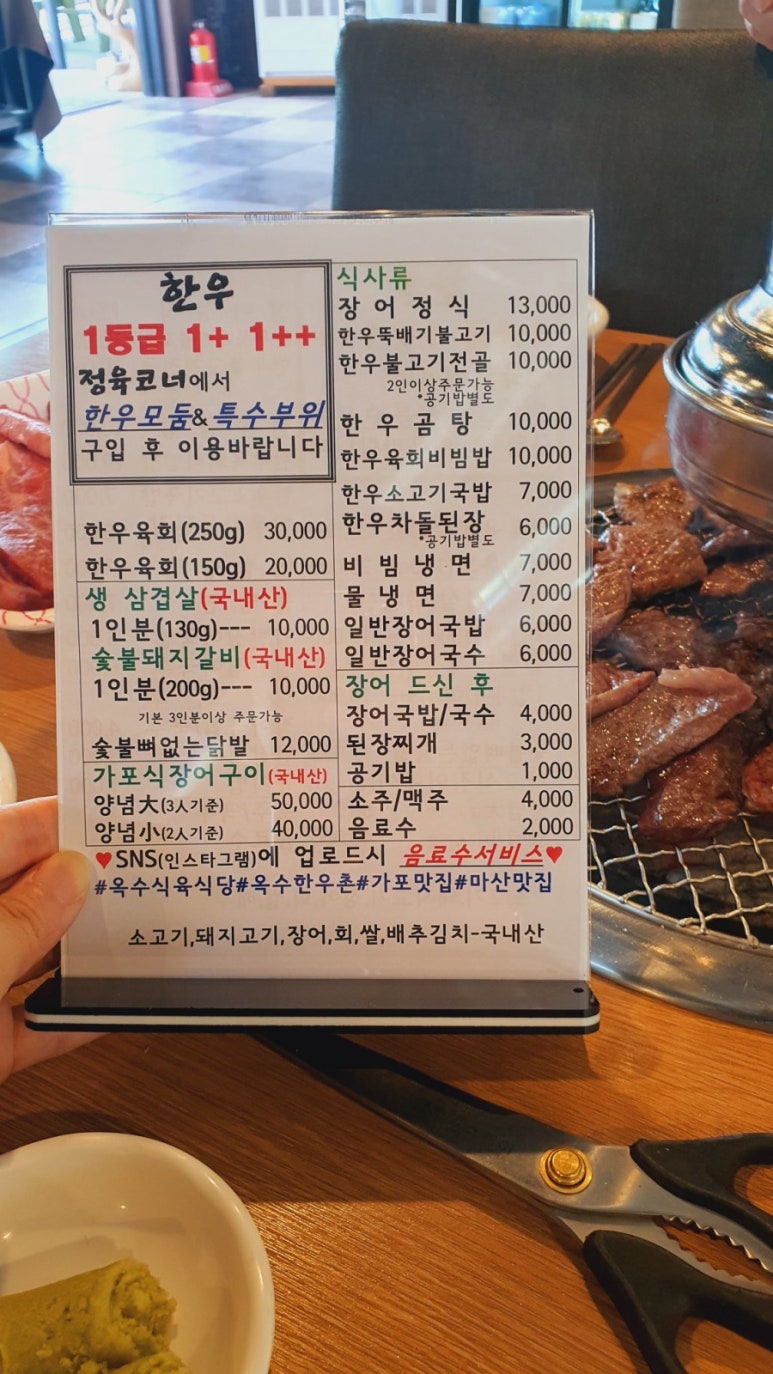 한우
1등급 1+ 1++
정육코너에서
한우모둠&특수부위
구입 후 이용바랍니다
한우육회(250g) 30,000
한우육회(150g) 20,000
생 삼겹살(국내산)
1인분(130g)--- 10,000
숯불돼지갈비(국내산)
1인분(200g)--- 10,000
기본 3인분이상 주문가능
숯불뼈없는닭발 12,000
가포식장어구이(국내산)
양념大(3人기준) 50,000
양념小(2人기준) 40,000
식사류
장어정식 13,000
한우뚝배기불고기 10,000
한우불고기전골 10,000
2인이상주문가능
*공기밥별도
한우곰탕 10,000
한우육회비빔밥 10,000
한우소고기국밥 7,000
한우차돌된장 6,000
*공기밥별도
비빔냉면 7,000
물냉면 7,000
일반장어국밥 6,000
일반장어국수 6,000
장어 드신 후
장어국밥/국수 4,000
된장찌개 3,000
공기밥 1,000
소주/맥주 4,000
음료수 2,000
♥SNS(인스타그램)에 업로드시 음료수서비스♥
#옥수식육식당#옥수한우촌#가포맛집#마산맛집
소고기,돼지고기,장어,회,쌀,배추김치-국내산